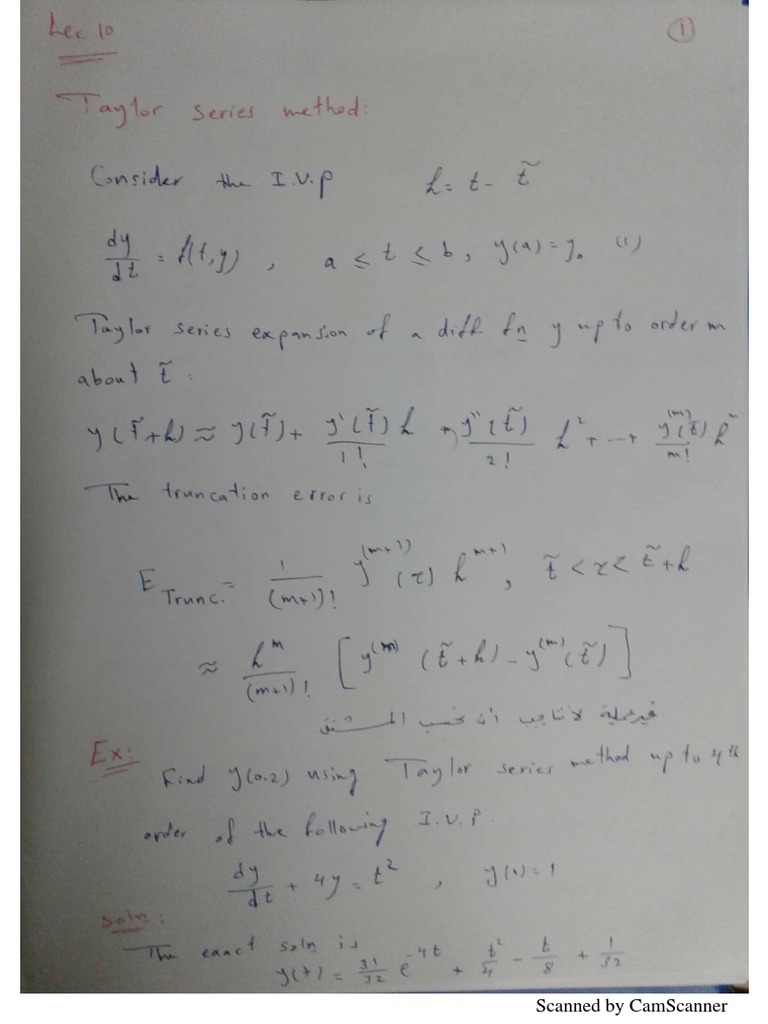 Lec 10
①
Taylor series method:
Consider the I.V.P h = t - t̃
dy/dt = f(t,y) , a ≤ t ≤ b, y(a) = y₀ (1)
Taylor series expansion of a diff. fn y up to order m
about t̃ :
y(t̃+h) ≈ y(t̃) + y'(t̃)/1! h + y''(t̃)/2! h² + --- + y⁽ᵐ⁾(t̃)/m! hᵐ
The truncation error is
E Trunc. = 1/(m+1)! y⁽ᵐ⁺¹⁾(τ) hᵐ⁺¹, t̃ < τ < t̃+h
≈ hᵐ/(m+1)! [y⁽ᵐ⁾(t̃+h) - y⁽ᵐ⁾(t̃)]
غير عملية لأننا يجب أن نحسب المشتق
Ex:
Find y(0.2) using Taylor series method up to 4th
order of the following I.V.P.
dy/dt + 4y = t² , y(0) = 1
Soln:
The exact soln is
y(t) = 31/32 e⁻⁴ᵗ + t²/4 - t/8 + 1/32
Scanned by CamScanner